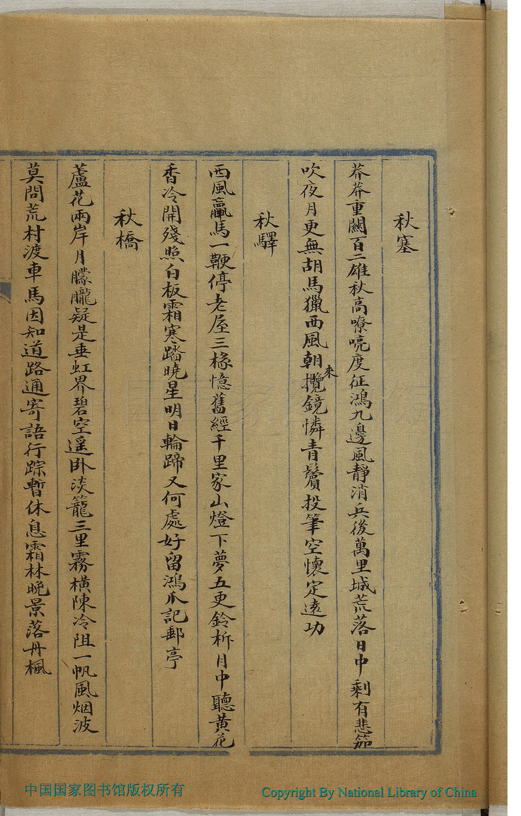 秋塞
莽莽重關百二雄秋高嘹喨度征鴻九邊風靜消兵後萬里城荒落日中剩有悲笳
吹夜月更無胡馬獵西風朝來攬鏡憐青鬢投筆空懷定遠功
秋驛
西風羸馬一鞭停老屋三椽憶舊經千里家山燈下夢五更鈴柝月中聽黃花
香冷開殘照白板霜寒踏曉星明日輪蹄又何處好留鴻爪記郵亭
秋橋
蘆花兩岸月朦朧疑是垂虹界碧空遥卧淡籠三里霧橫陳冷阻一帆風烟波
莫問荒村渡車馬因知道路通寄語行踪暫休息霜林晚景落丹楓
中国国家图书馆版权所有
Copyright By National Library of China